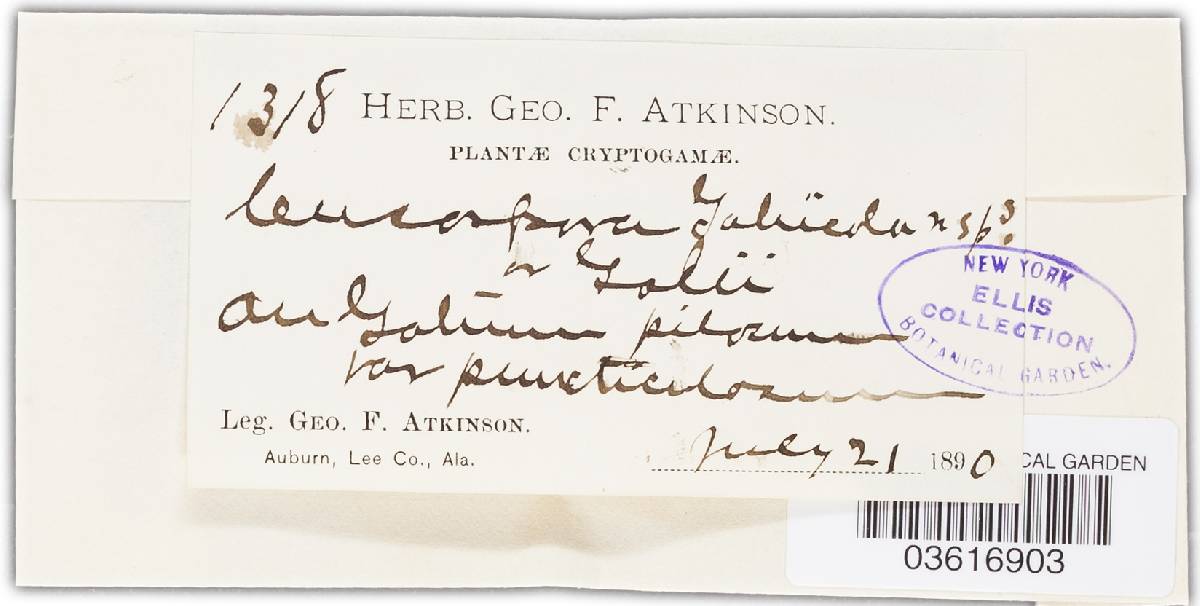 1318 HERB. GEO. F. ATKINSON.
PLANTÆ CRYPTOGAMÆ.
Cercospora Galiicola n sp?
or Galii
on Galium pilosum
var puncticulosum
NEW YORK
ELLIS
COLLECTION
BOTANICAL GARDEN.
Leg. GEO. F. ATKINSON.
Auburn, Lee Co., Ala.
July 21 1890
CAL GARDEN
03616903